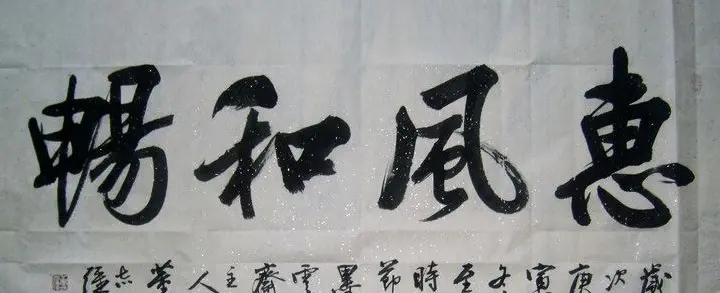 惠風和暢
歲次庚寅冬至時節墨雲齋主人董志強